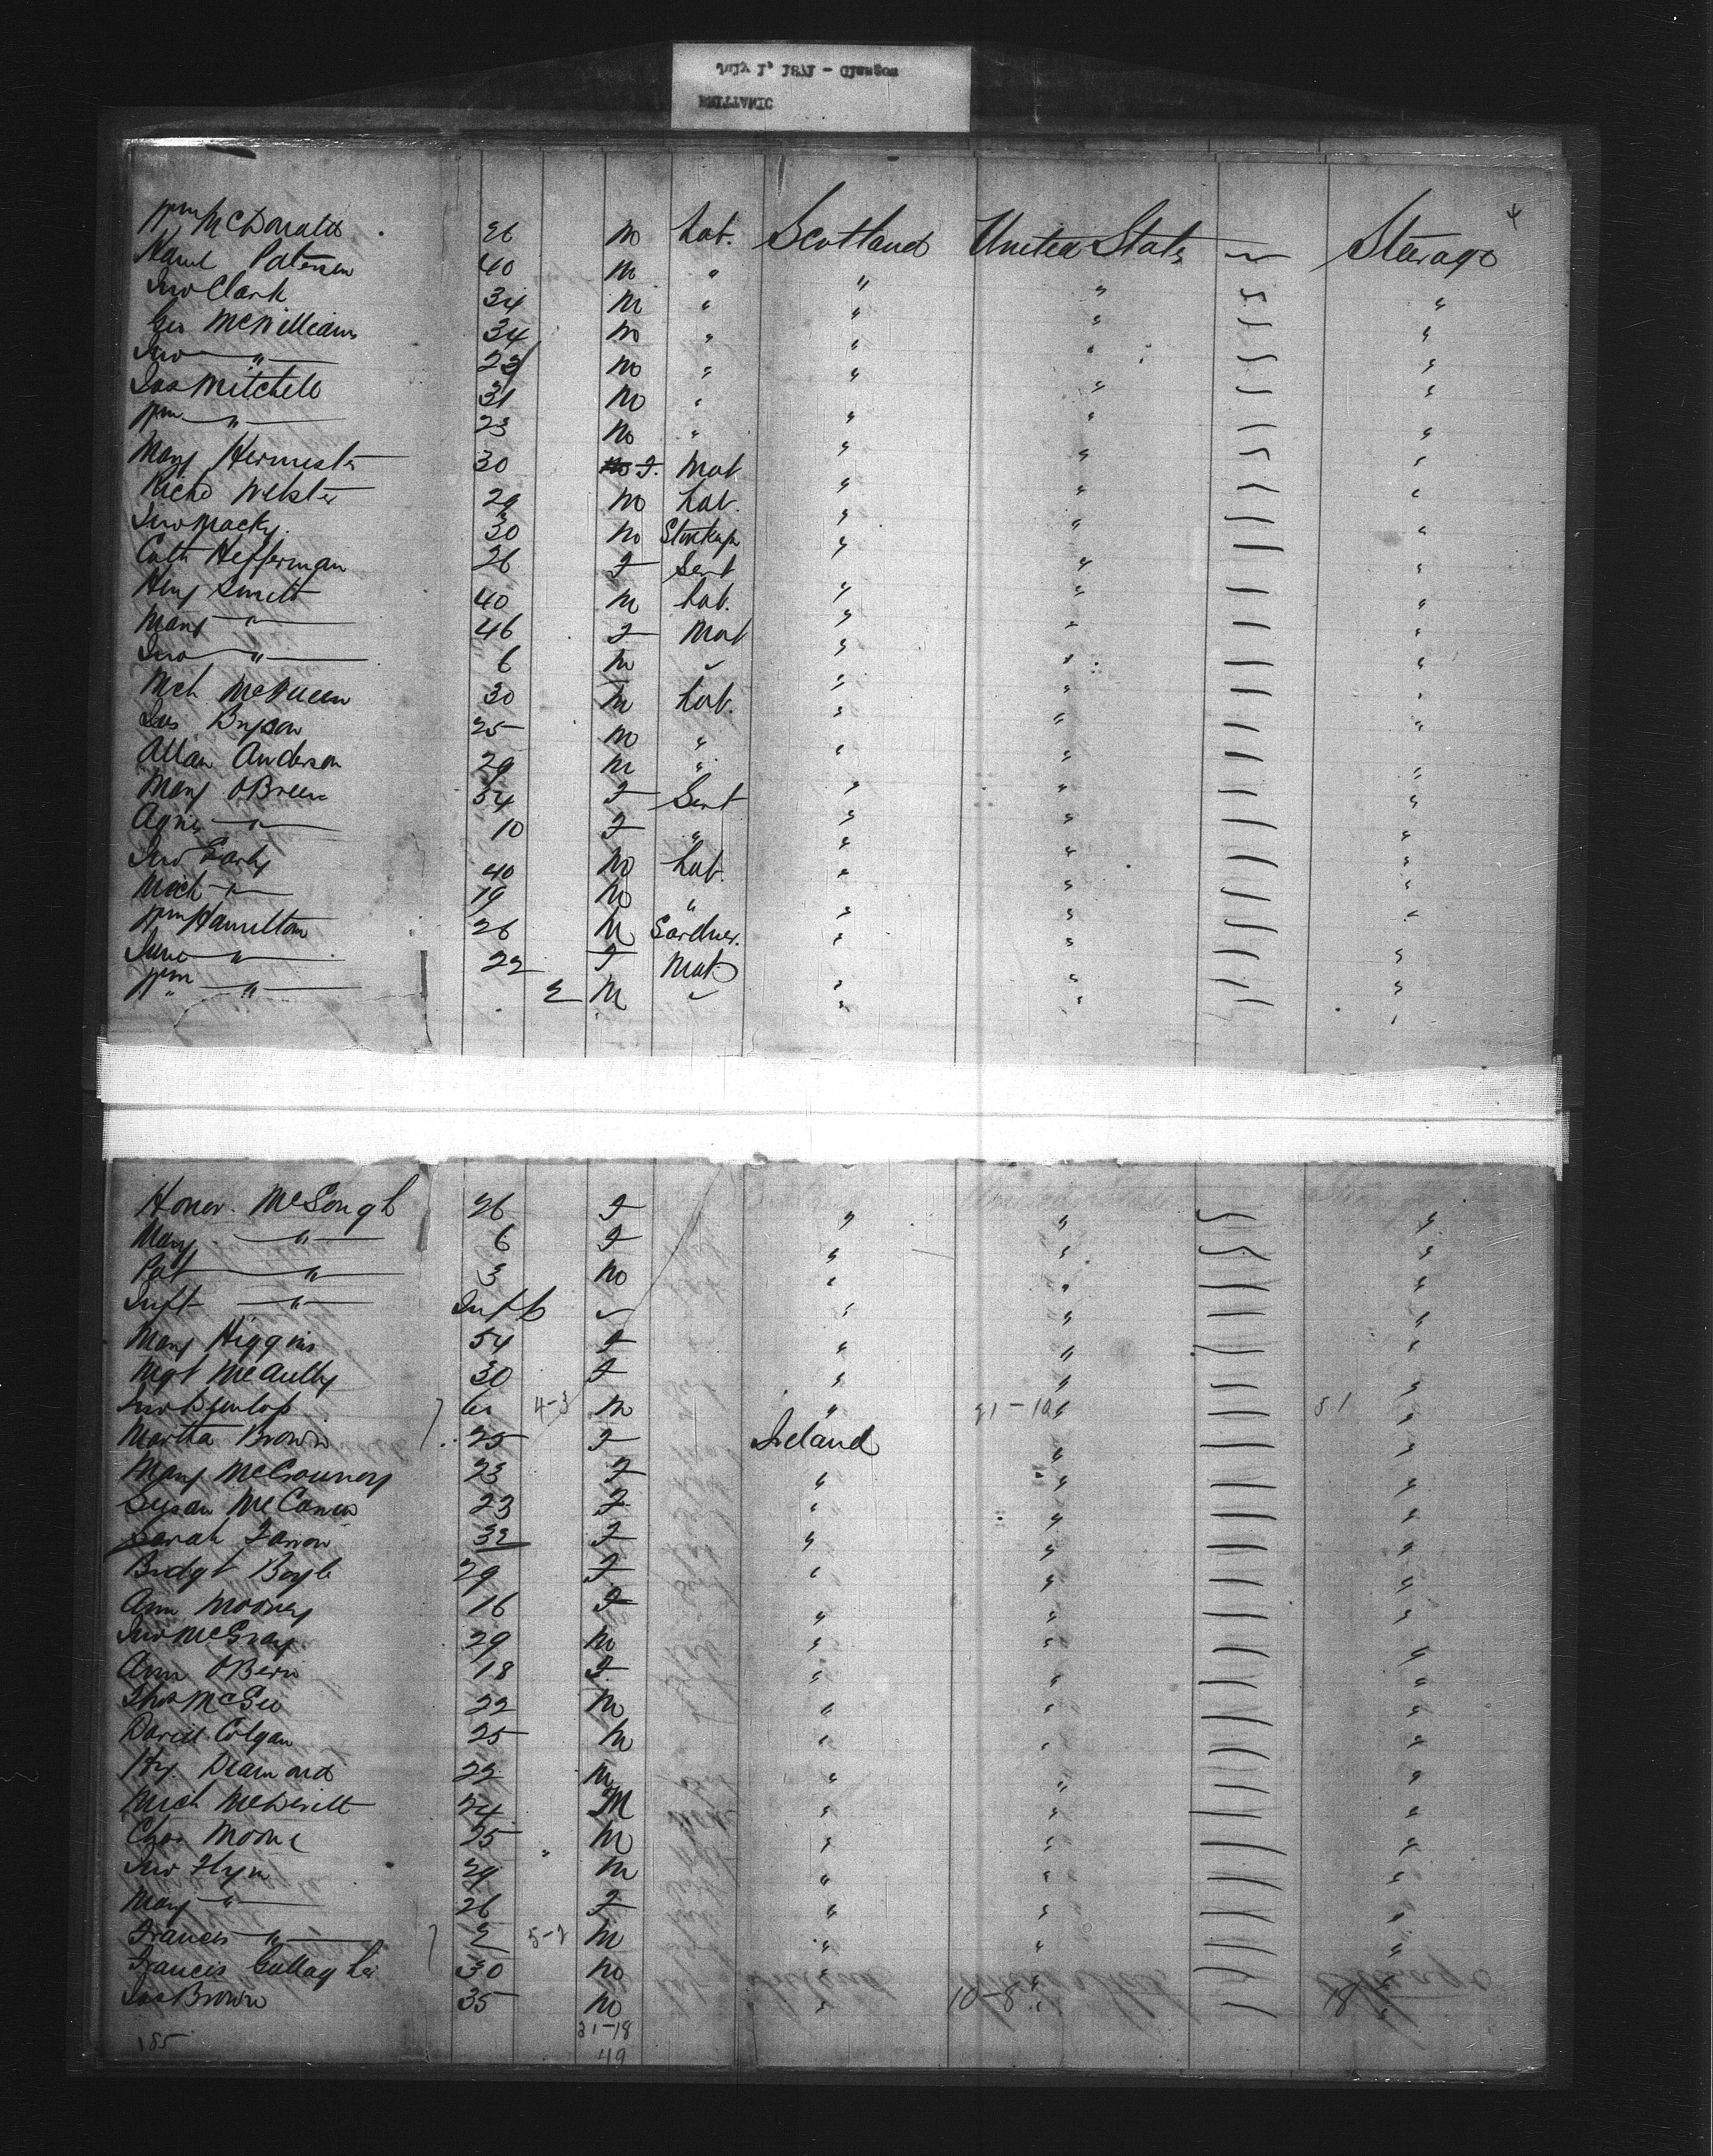 Wm McDonald 26 M Lab. Scotland United States Steerage
Paterson 40 M " " " "
Jno Clark 34 M " " " "
Geo McWilliams 34 M " " " "
Jno " M " " " "
Jas Mitchell 31 M " " " "
Wm " 23 M " " " "
Mary 30 F. Mat " " "
Richd Webster 29 M Lab. " " "
Jno Macky 30 M " " "
Cath Hefferman 26 F Sert " " "
Hny Smith 40 M Lab. " " "
Mary " 46 F Mat " " "
Jno " 6 M " " "
Mch McQueen 30 M Lab. " " "
Jas Bryson 25 M " " " "
Allan Anderson 29 M " " " "
Mary OBreen 54 F Sert " " "
Agnes " 10 F " " " "
Jno Early 40 M Lab. " " "
Mich " 19 M " " " "
Wm Hamilton 26 M Gardner. " " "
Jane " 22 F Mat " " "
Wm " 2 M " " "
Honor. McGongh 26 F " " "
Mary " 6 F " " "
Pat " 3 M " " "
Inft " Inft " " "
Mary Higgins 54 F " " "
Mgt McAully 30 F " " "
Jno Dunlop 4-3 M " " 51
Martha Brown 25 F Ireland " "
Mary 23 F " " "
Susan McCann 23 F " " "
Sarah Farron 32 F " " "
Bridgt Boyle 29 F " " "
Ann Mooney 16 F " " "
Jno McGray 29 M " " "
Ann OBern 18 F " " "
Thos McGee 22 M " " "
David Colgan 25 M " " "
Hy. Diamond 22 M " " "
Mich McDevitt 24 M " " "
Chas Moore 25 M " " "
Jno Flyn 29 M " " "
Mary " 26 F " " "
Francis " 2 M " " "
Francis Gallagher 30 M " " "
Jas Brown 35 M " 10-8 " 18 "
185 31-18
49